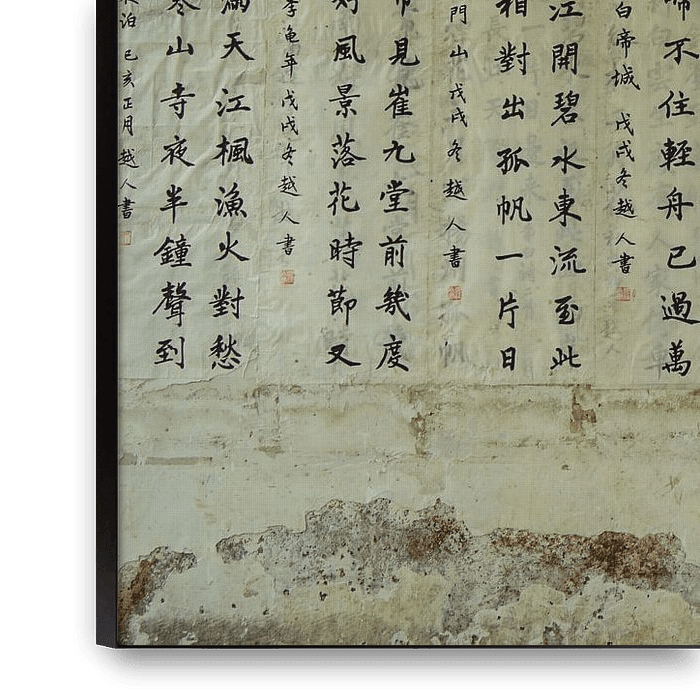 啼不住輕舟已過萬
白帝城 戊戌冬越人書
江開碧水東流至此
相對出孤帆一片日
門山戊戌冬越人書
常見崔九堂前幾度
風景落花時節又
李亀年戊戌冬越人書
滿天江楓漁火對愁
寒山寺夜半鐘聲到
泊 己亥正月越人書